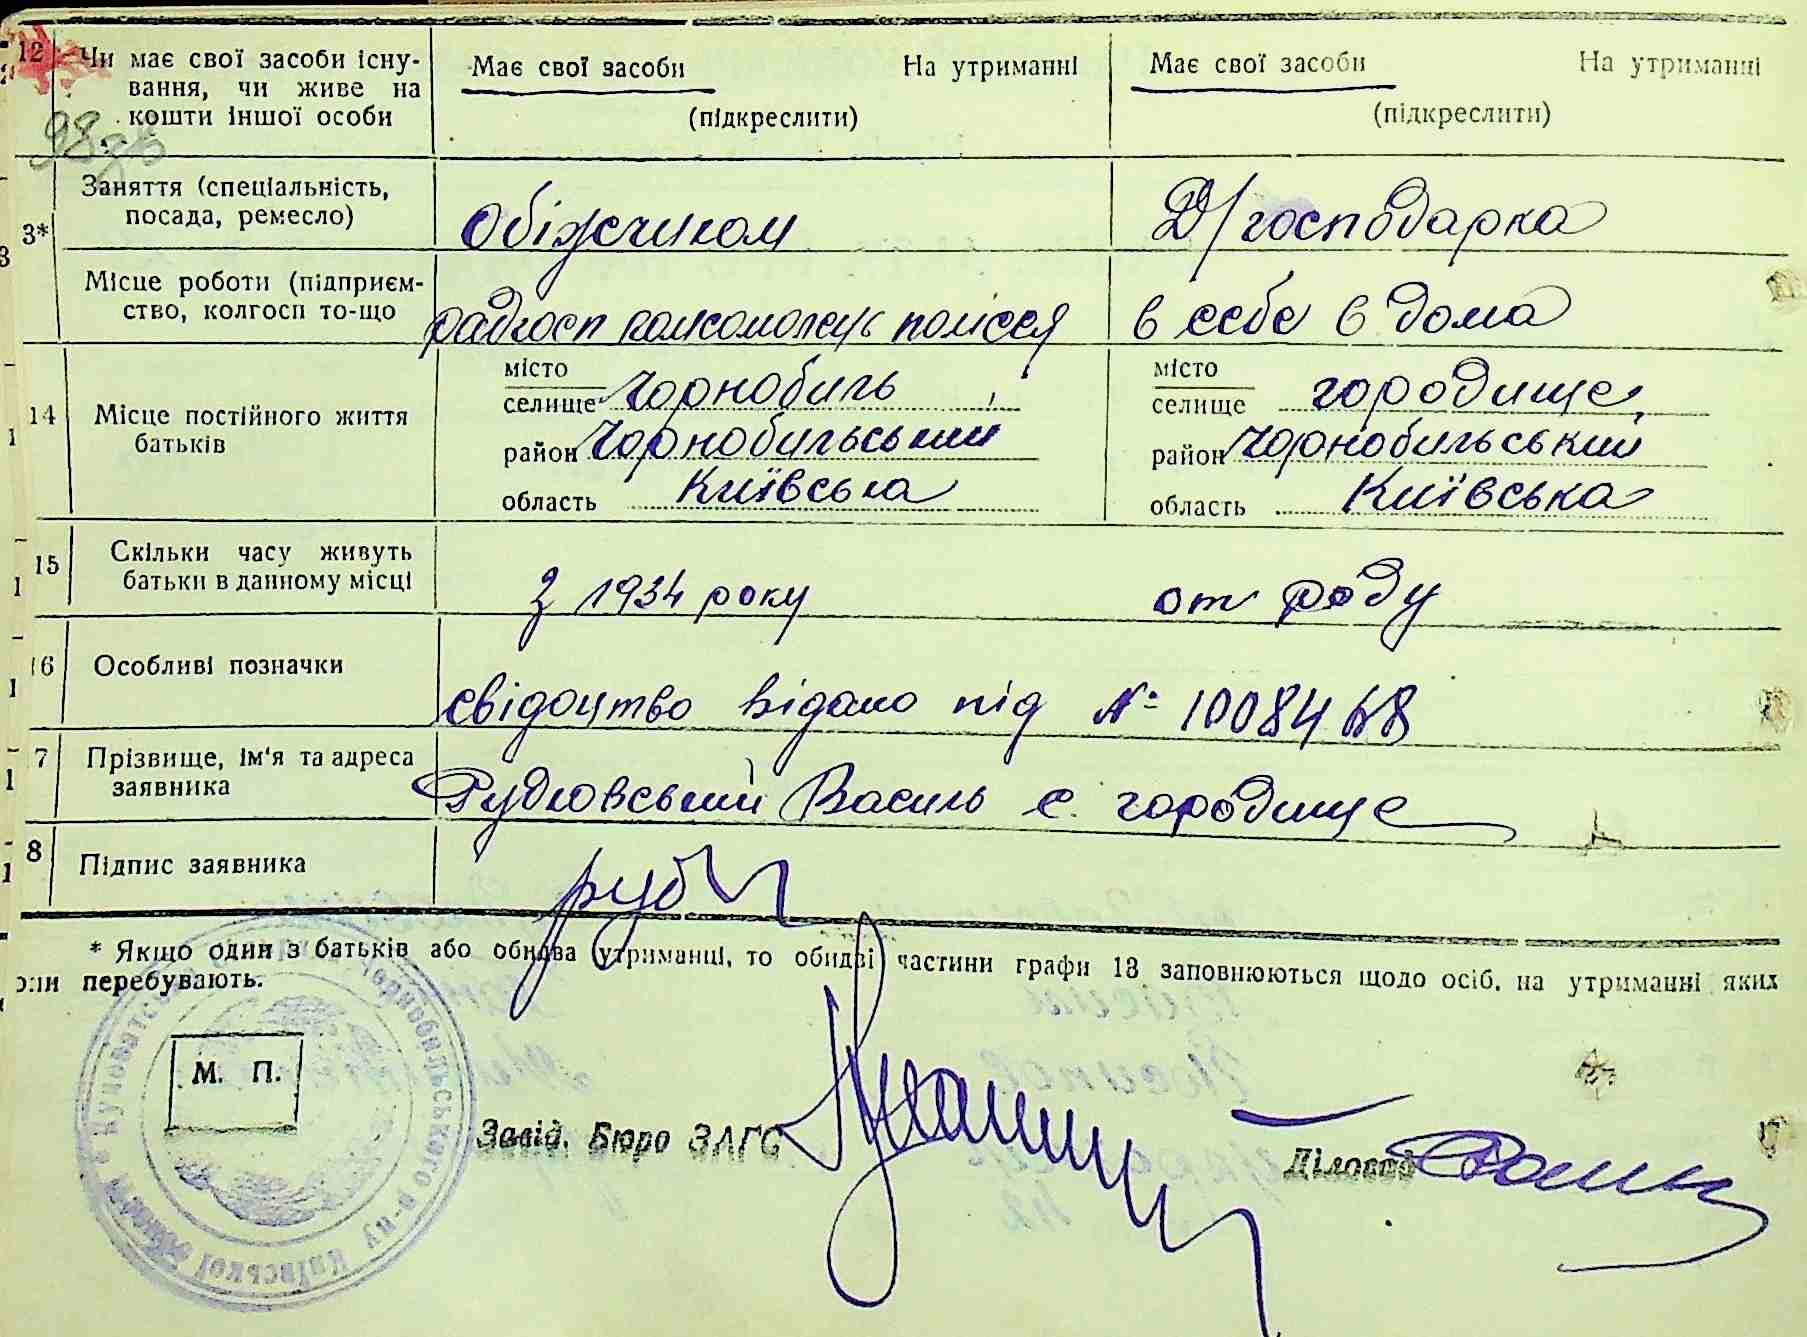 12 Чи має свої засоби існу-
вання, чи живе на
кошти іншої особи
Має свої засоби На утриманні
(підкреслити)
Має свої засоби На утриманні
(підкреслити)
3*
Заняття (спеціальність,
посада, ремесло)
Обіжчиком
Д/господарка
Місце роботи (підприєм-
ство, колгосп то-що
радгосп комсомолець полісся
в себе в дома
14
Місце постійного життя
батьків
місто
селище Чорнобиль
район Чорнобильський
область Київська
місто
селище городище
район Чорнобильський
область Київська
15
Скільки часу живуть
батьки в данному місці
з 1934 року
от роду
16
Особливі позначки
свідоцтво відано під № 1008468
7
Прізвище, ім'я та адреса
заявника
Рудковський Василь с. городище
8
Підпис заявника
* Якщо один з батьків або обидва утриманні, то обидві частини графи 13 заповнюються щодо осіб, на утриманні яких
они перебувають.
М. П.
Чорнобильського р-ну Київської
Завід. Бюро ЗАГС
Діловод